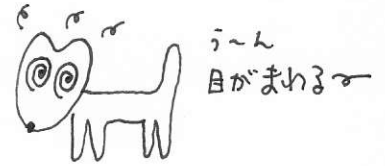 う～ん
目がまわる～